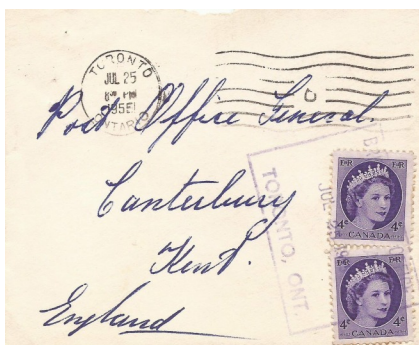 TORONTO
JUL 25
PM
ONTARIO
Post Office General.
Canterbury
Kent.
England
TORONTO, ONT.
JUL 2
E R
4¢ 4¢
CANADA
E R
4¢ 4¢
CANADA